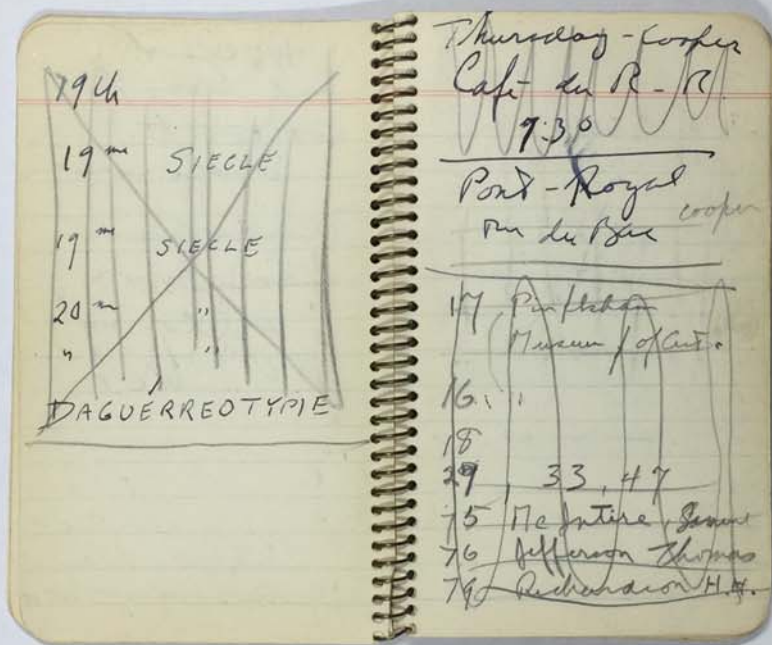 19th
19 me SIECLE
19 me SIECLE
20 m "
" "
DAGUÉRREOTYPIE
Thursday - Cooper
Café du R - R
9.30
Pont - Royal
cooper
rue du Bac
17, 
Museum of Art.
16, "
18
29, 33, 47
75 McIntire,
76 Jefferson Thomas
79 Richardson H.H.